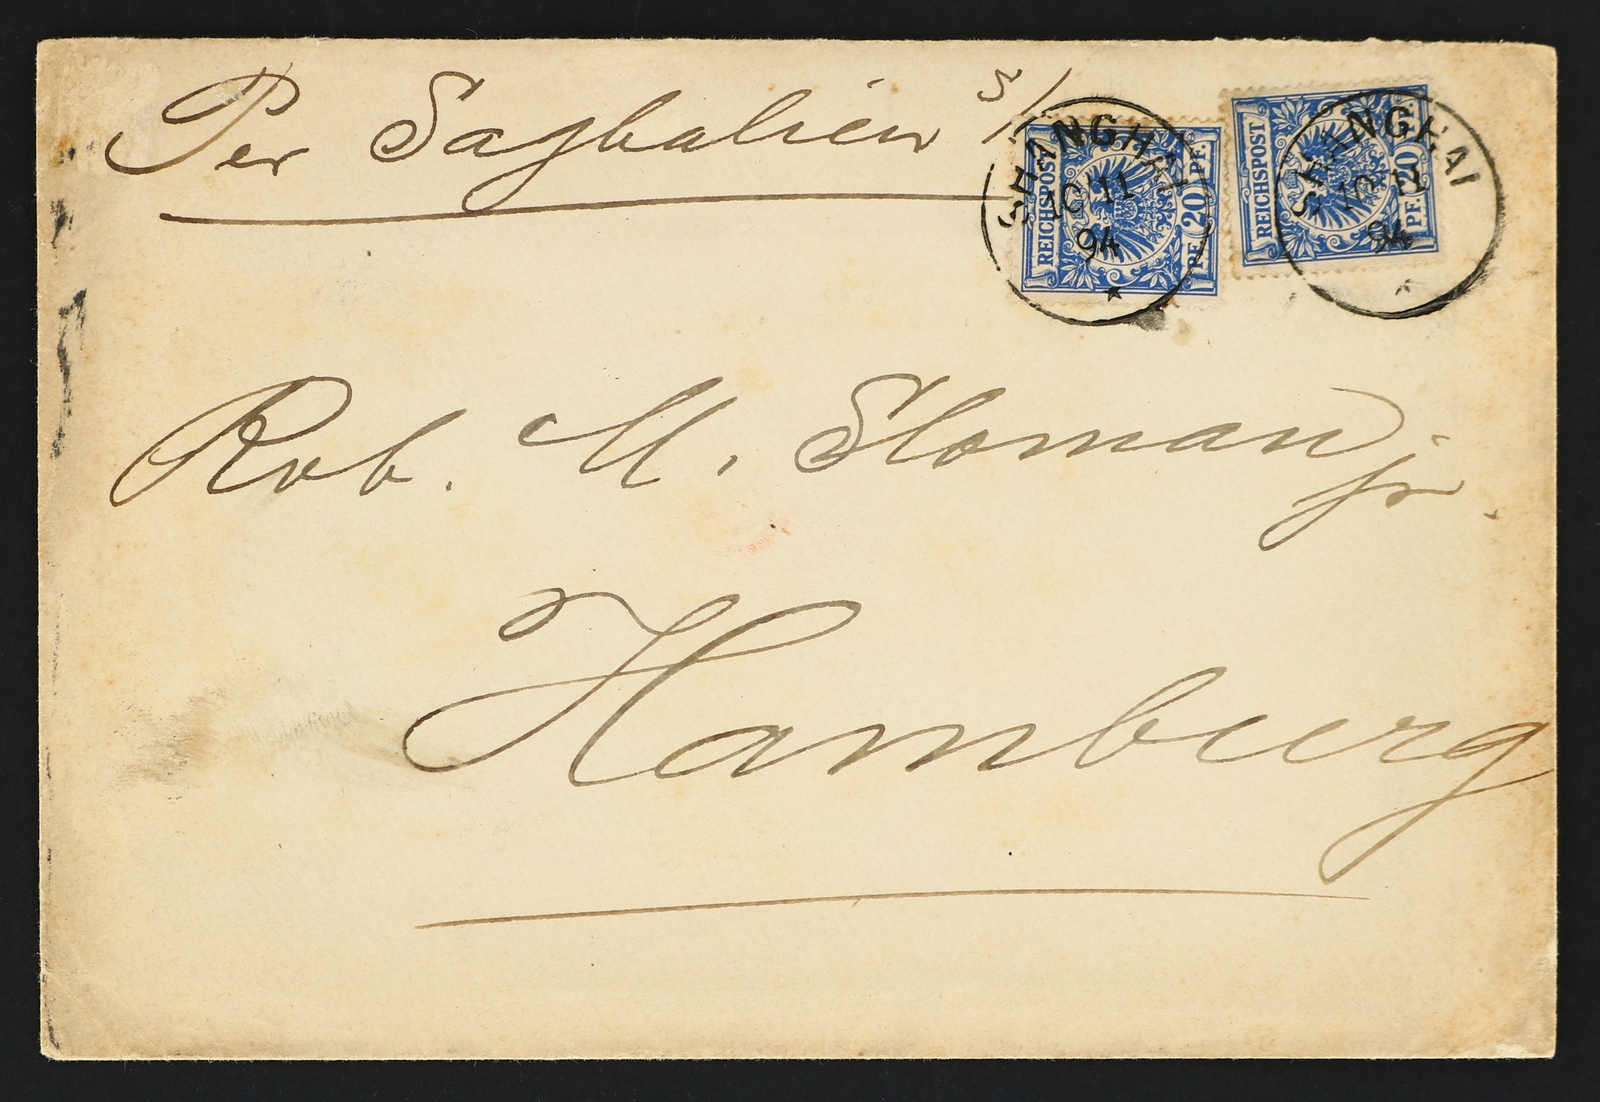 Per Saghalien S/S
SHANGHAI
10 11
94
REICHSPOST
PF. 20 PF.
SHANGHAI
10 11
94
REICHSPOST
PF. 20 PF.
Rob. M. Sloman jr.
Hamburg